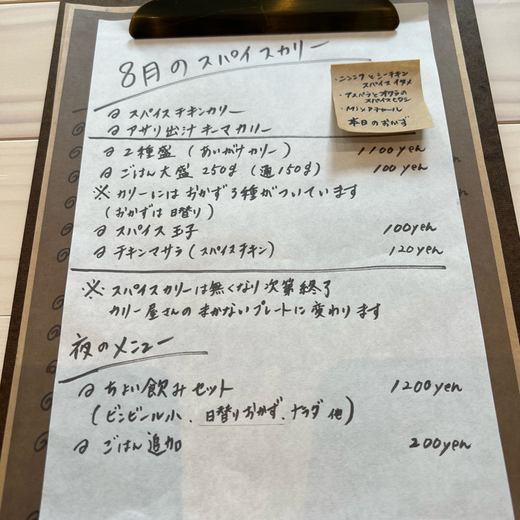 8月のスパイスカリー
・ニンジンとシーチキン
スパイスイタメ
・アスパラとオクラの
スパイス
・Mixアチャール
本日のおかず
スパイスチキンカリー
アサリ出汁キーマカリー
2種盛（あいがけカリー） 1100yen
ごはん大盛250g（通150g） 100yen
※カリーにはおかず3種がついています
（おかずは日替り）
スパイス玉子 100yen
チキンマサラ（スパイスチキン） 120yen
※スパイスカリーは無くなり次第終了
カリー屋さんのまかないプレートに変わります
夜のメニュー
ちょい飲みセット 1200yen
（ビンビール小、日替りおかず、サラダ他）
ごはん追加 200yen